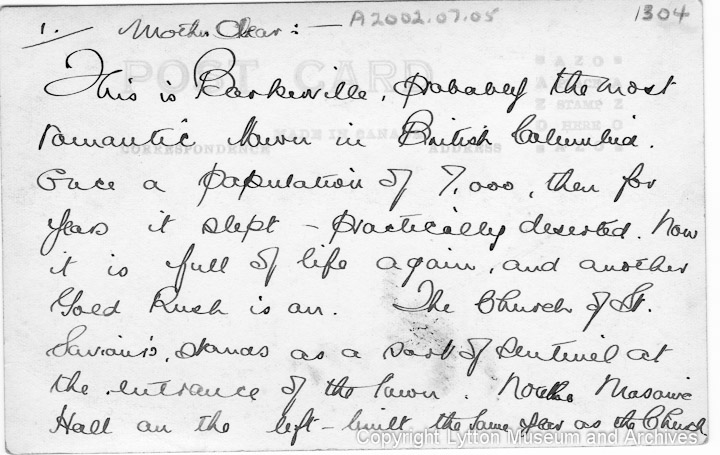 1. Mother Dear:— A2002.07.05 1304
POST CARD
AZO
STAMP
HERE
AZO
MADE IN CANADA
CORRESPONDENCE ADDRESS
This is Barkerville, probably the most
romantic town in British Columbia.
Once a population of 7,000, then for
years it slept – practically deserted. Now
it is full of life again, and another
Gold Rush is on. The Church of St.
Saviour's, stands as a sort of Sentinel at
the entrance of the town. Masonic
Hall on the left – built the same year as the Church
Copyright Lytton Museum and Archives